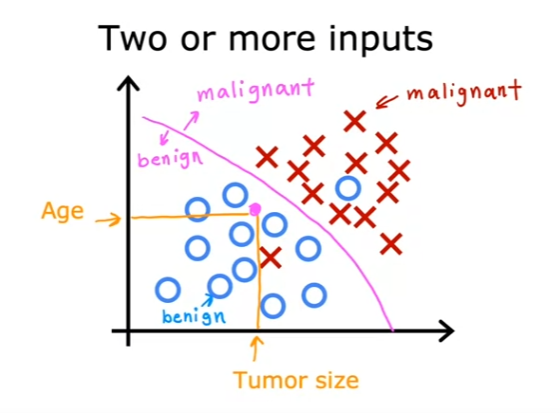 Two or more inputs
malignant
malignant
benign
Age
benign
Tumor size